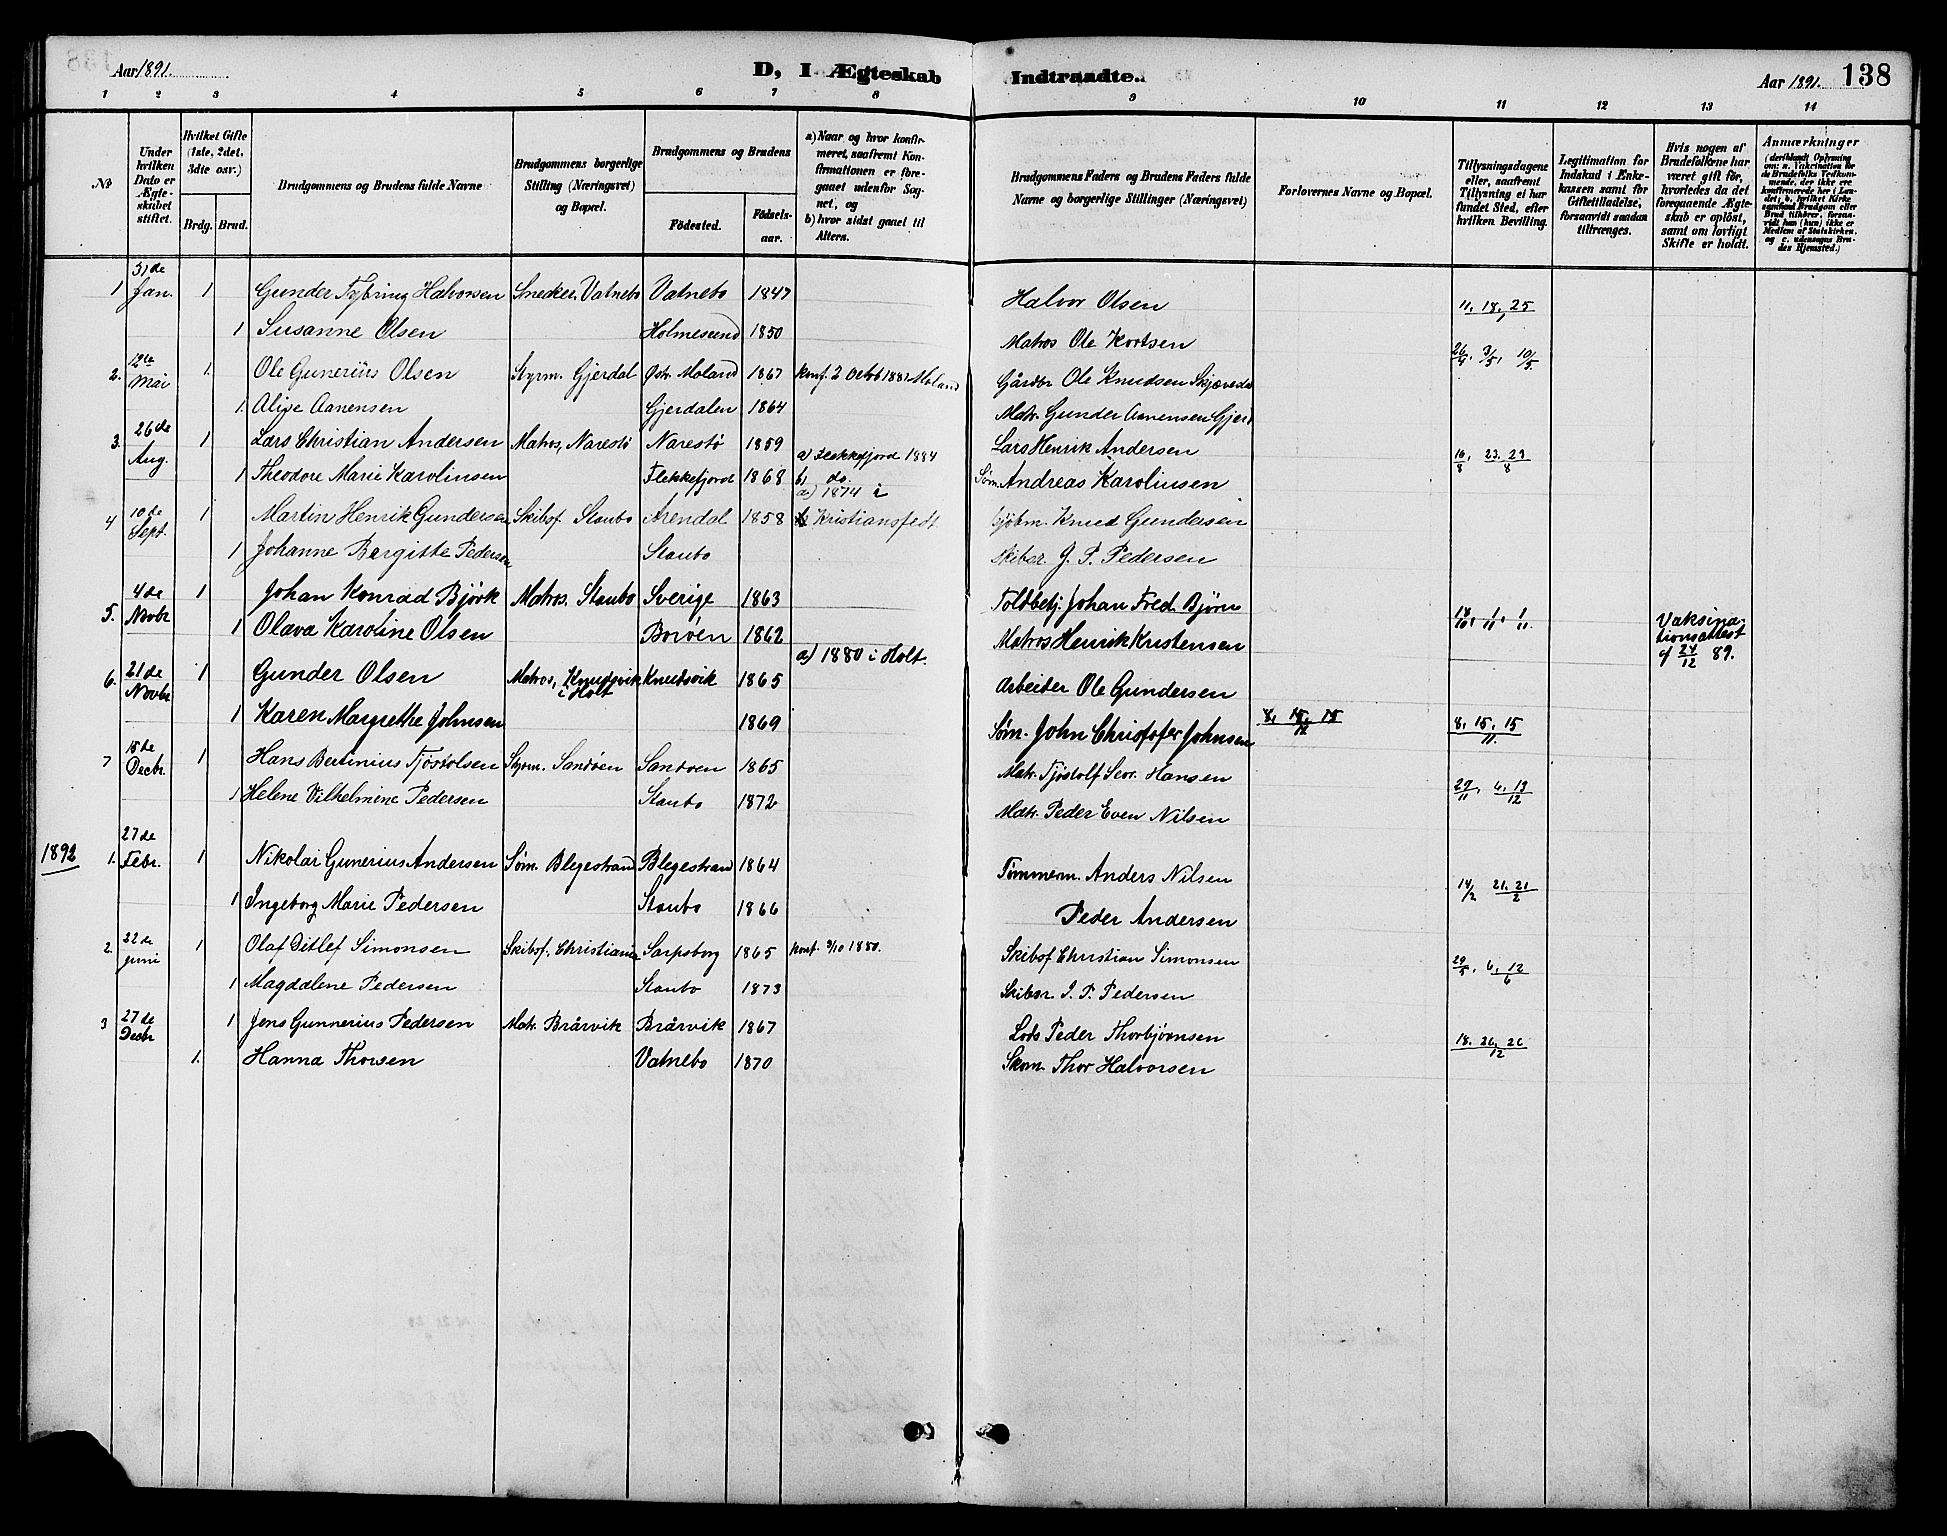 Aar 1891.
D, I Ægteskab Indtraadte.
Aar 1891.
138
1 2 3 4 5 6 7 8 9 10 11 12 13 14
№
Under hvilken Dato er Ægteskabet stiftet.
Hvilket Gifte (1ste, 2det, 3dte osv.)
Brdg. Brud.
Brudgommens og Brudens fulde Navne
Brudgommens borgerlige Stilling (Næringsvei) og Bopæl.
Brudgommens og Brudens
Födested.
Födselsaar.
a) Naar og hvor konfirmeret, saafremt Konfirmationen er foregaaet udenfor Sognet, og
b) hvor sidst gaaet til Alters.
Brudgommens Faders og Brudens Faders fulde Navne og borgerlige Stillinger (Næringsvei)
Forlovernes Navne og Bopæl.
Tillysningsdagene eller, saafremt Tillysning ei har fundet Sted, efter hvilken Bevilling.
Legitimation for Indskud i Enkekassen samt for Giftetilladelse, forsaavidt saadan tiltrænges.
Hvis nogen af Brudefolkene har været gift før, hvorledes da det foregaaende Ægteskab er oplöst, samt om lovligt Skifte er holdt.
Anmærkninger (deriblandt Oplysning om: a. Vakcination for de Brudefolks Vedkommende, der ikke ere konfirmerede her i Landet; b. hvilket Kirkesamfund Brudgom eller Brud tilhörer, forsaavidt han (hun) ikke er Medlem af Statskirken, og c. udensogns Brudes Hjemsted.)
1 31de Jan. 1 Gunder Fybring Halvorsen Snedker, Vatnebo Vatnebo 1847 Halvor Olsen 11, 18, 25
1 Susanne Olsen Holmesund 1850 Matros Ole Kortsen
2. 12te Mai 1. Ole Gunerius Olsen Styrm. Gjerdal Østr. Moland 1867 Konf. 2 Octob 1881 Moland Gårdbr Ole Knudsen 26/4, 3/5, 10/5
1. Alise Aanensen Gjerdalen 1864 Matr. Gunder Aanensen
3. 26de Aug. 1 Lars Christian Andersen Matros, Narestö Narestö 1859 Lars Henrik Andersen 16/8, 23. 23/8
1 Theodore Marie Karolinsen Flekkefjord 1868 a) Flekkefjord 1884 b) do. Søm. Andreas Karolinsen
4 10de Sept. 1 Martin Henrik Gundersen Skibsf. Staubo Arendal 1858 a) 1874 i Kristiansfedt Knud Gundersen
1 Johanne Bergitte Pedersen Staubo Skibsr. J. P. Pedersen
5. 4de Novbr 1 Johan Konrad Björk Matros. Staubo Sverige 1863 Toldbetj. Johan Fred. Björn 18/10, 1/11, 1/11. Vaksinationsattest af 24/12 89.
1 Olava Karoline Olsen Borøen 1862 Matros Henrik Kristensen
6. 21de Novbr 1 Gunder Olsen Matros, Knudsvik i Holt Knudsvik 1865 a) 1880 i Holt. Arbeider Ole Gundersen
1 Karen Margrethe Johnsen 1869 Søm. John Christofer Johnsen 8, 15, 15/11 8, 15, 15/11.
7 18de Decbr. 1 Hans Bertinius Tjöstolsen Styrm. Sandøen Sandøen 1865 Matr. Tjöstolf Sevr. Hansen 29/11, 6, 13/12
1 Helene Vilhelmine Pedersen Staubo 1872 Matr. Peder Even Nilsen
1892
1. 27de Febr. 1 Nikolai Gunerius Andersen Søm. Blegestrand Blegestrand 1864 Tömmerm. Anders Nilsen 14/2 21. 21/2
1 Ingeborg Marie Pedersen Staubo 1866 Peder Andersen
2. 22de juni 1 Olaf Ditlef Simonsen Skibsf. Christiania Sarpsborg 1865 Konf. 3/10 1880. Skibsf Christian Simonsen 29/5, 6, 12/6
1 Magdalene Pedersen Staubo 1873 Skibsr. J. P. Pedersen
3 27de Decbr 1 Jens Gunnerius Pedersen Matr. Brårvik Brårvik 1867 Lods Peder Thorbjörnsen 18. 26. 26/12
1. Hanna Thorsen Vatnebo 1870 Skom. Thor Halvorsen